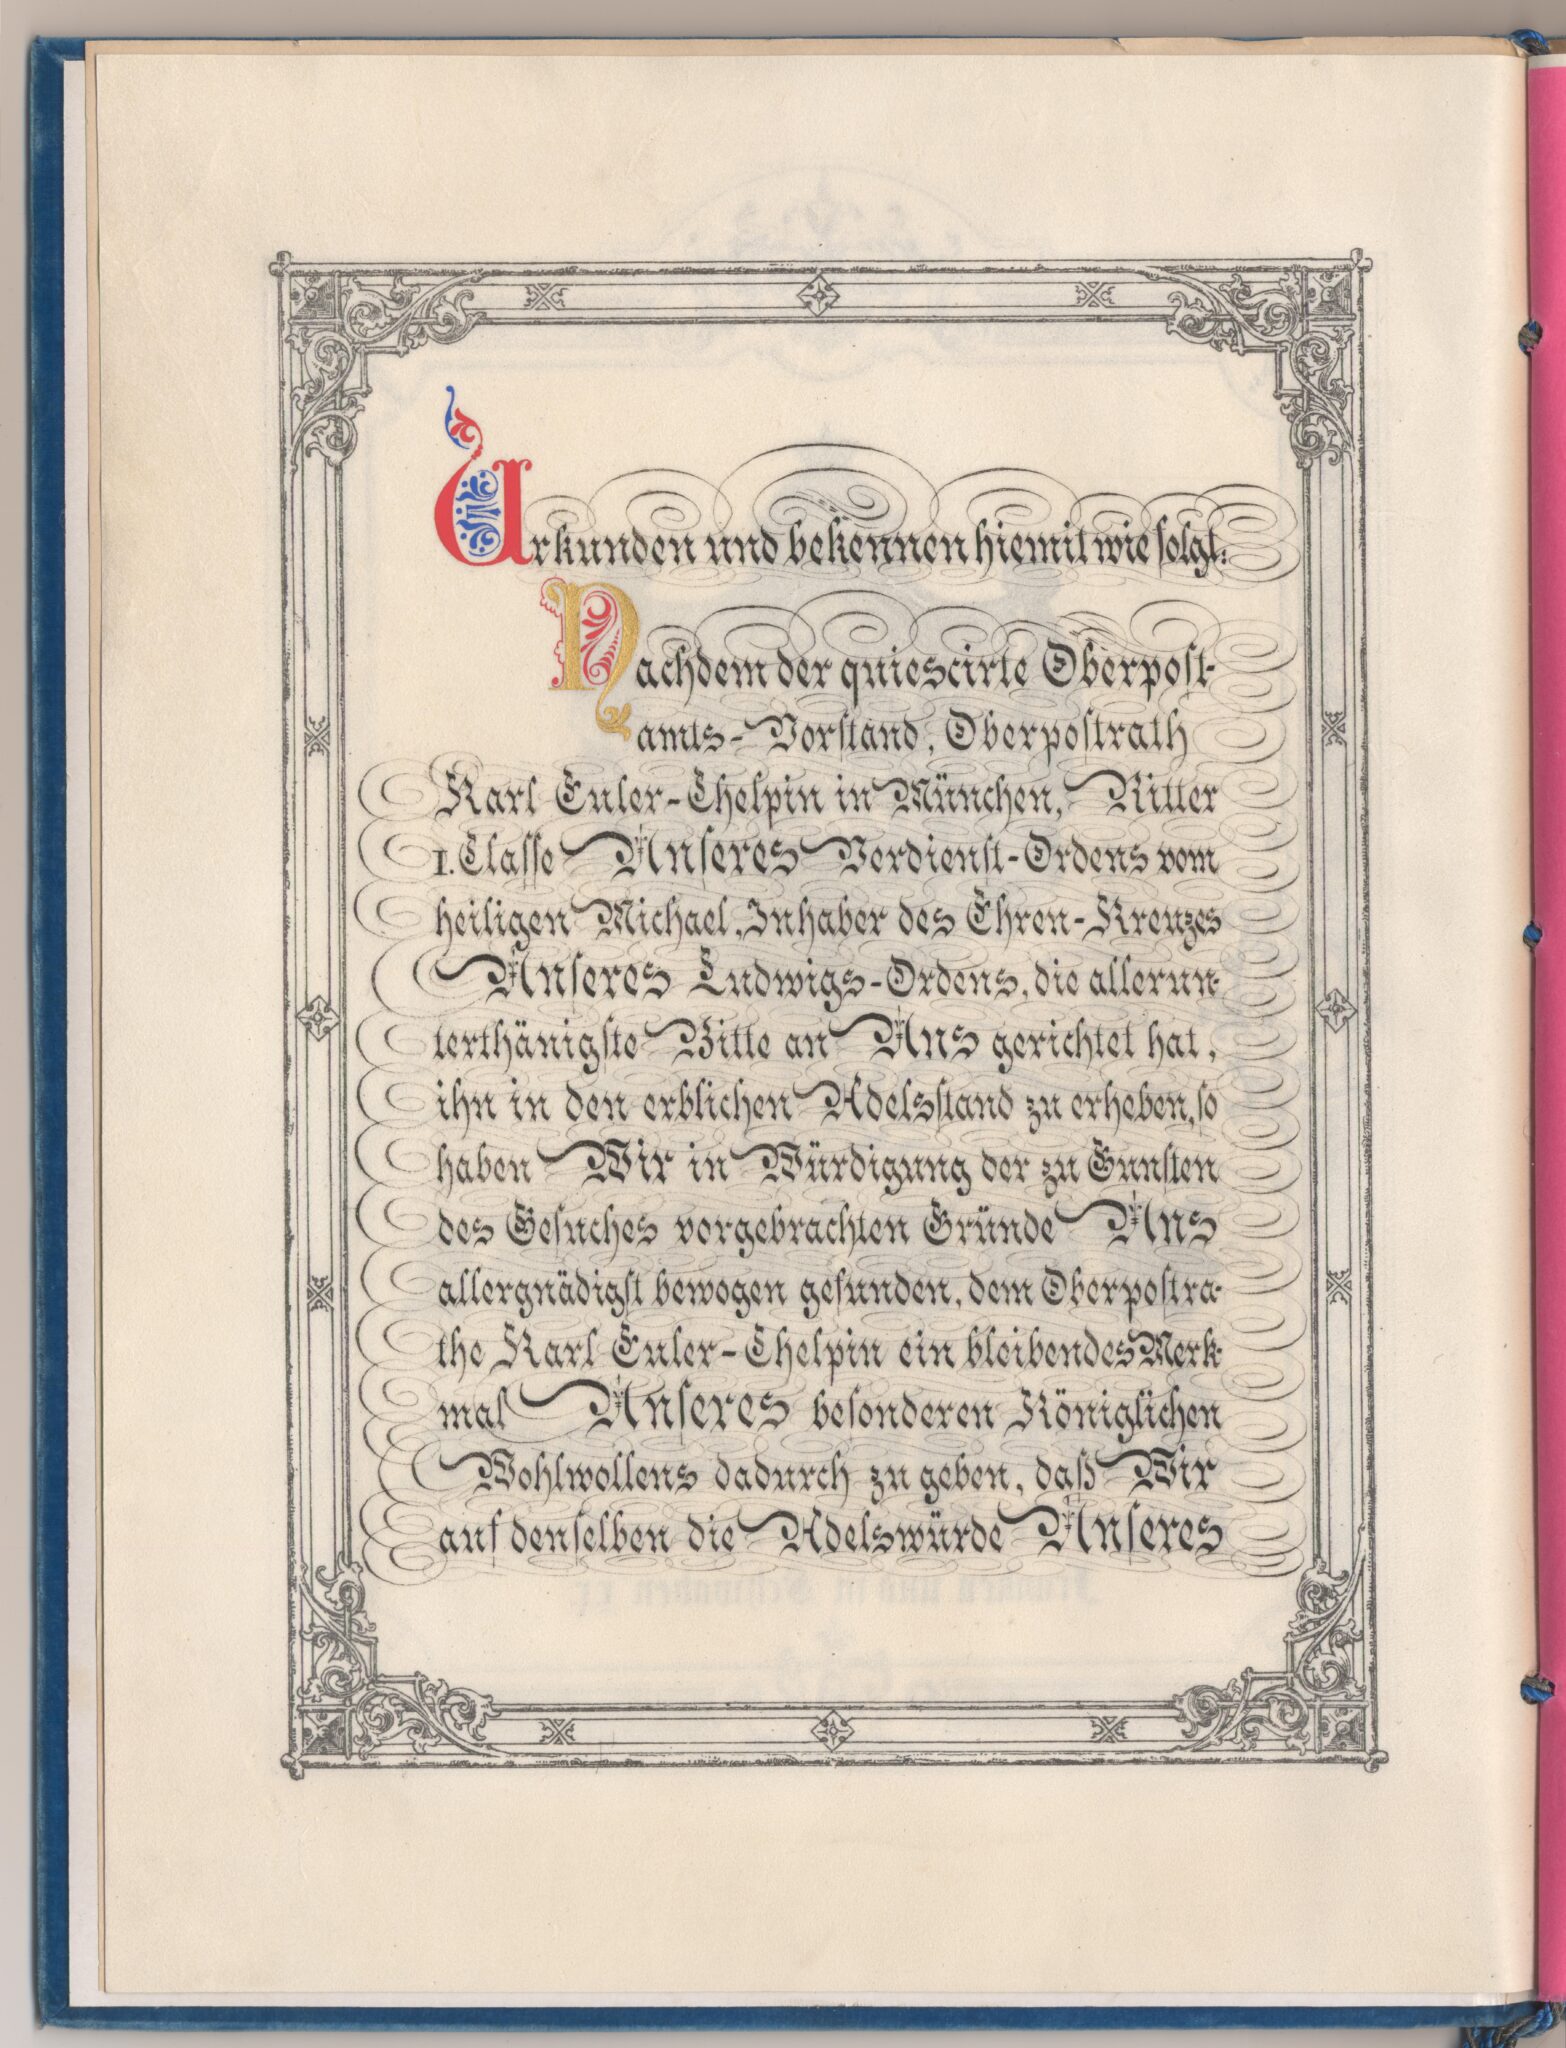 Urkunden und bekennen hiemit wie folgt:
Nachdem der quiescirte Oberpost-
amts-Vorstand, Oberpostrath
Karl Euler-Chelpin in München, Ritter
I. Classe Unseres Verdienst-Ordens vom
heiligen Michael, Inhaber des Ehren-Kreuzes
Unseres Ludwigs-Ordens, die allerun-
terthänigste Bitte an Uns gerichtet hat,
ihn in den erblichen Adelsstand zu erheben, so
haben Wir in Würdigung der zu Gunsten
des Gesuches vorgebrachten Gründe Uns
allergnädigst bewogen gefunden, dem Oberpostra-
the Karl Euler-Chelpin ein bleibendes Merk-
mal Unseres besonderen Königlichen
Wohlwollens dadurch zu geben, daß Wir
auf denselben die Adelswürde Unseres